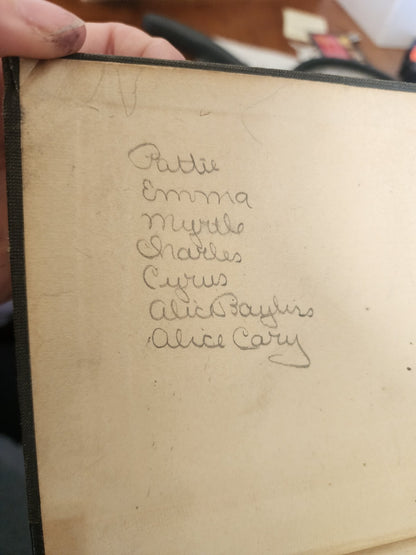 Pattie
Emma
Myrtle
Charles
Cyrus
Alic Bayliss
Alice Cary